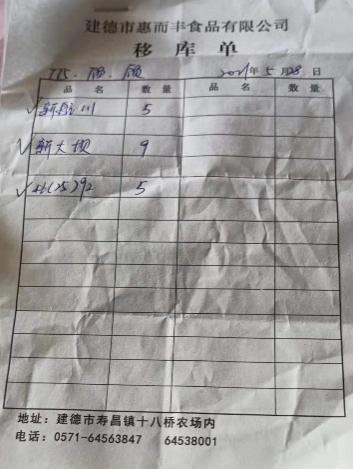 建德市惠而丰食品有限公司
移库单
2021年5月28日
品名 数量 品名 数量
5
新大坝 9
5
地址：建德市寿昌镇十八桥农场内
电话：0571-64563847 64538001